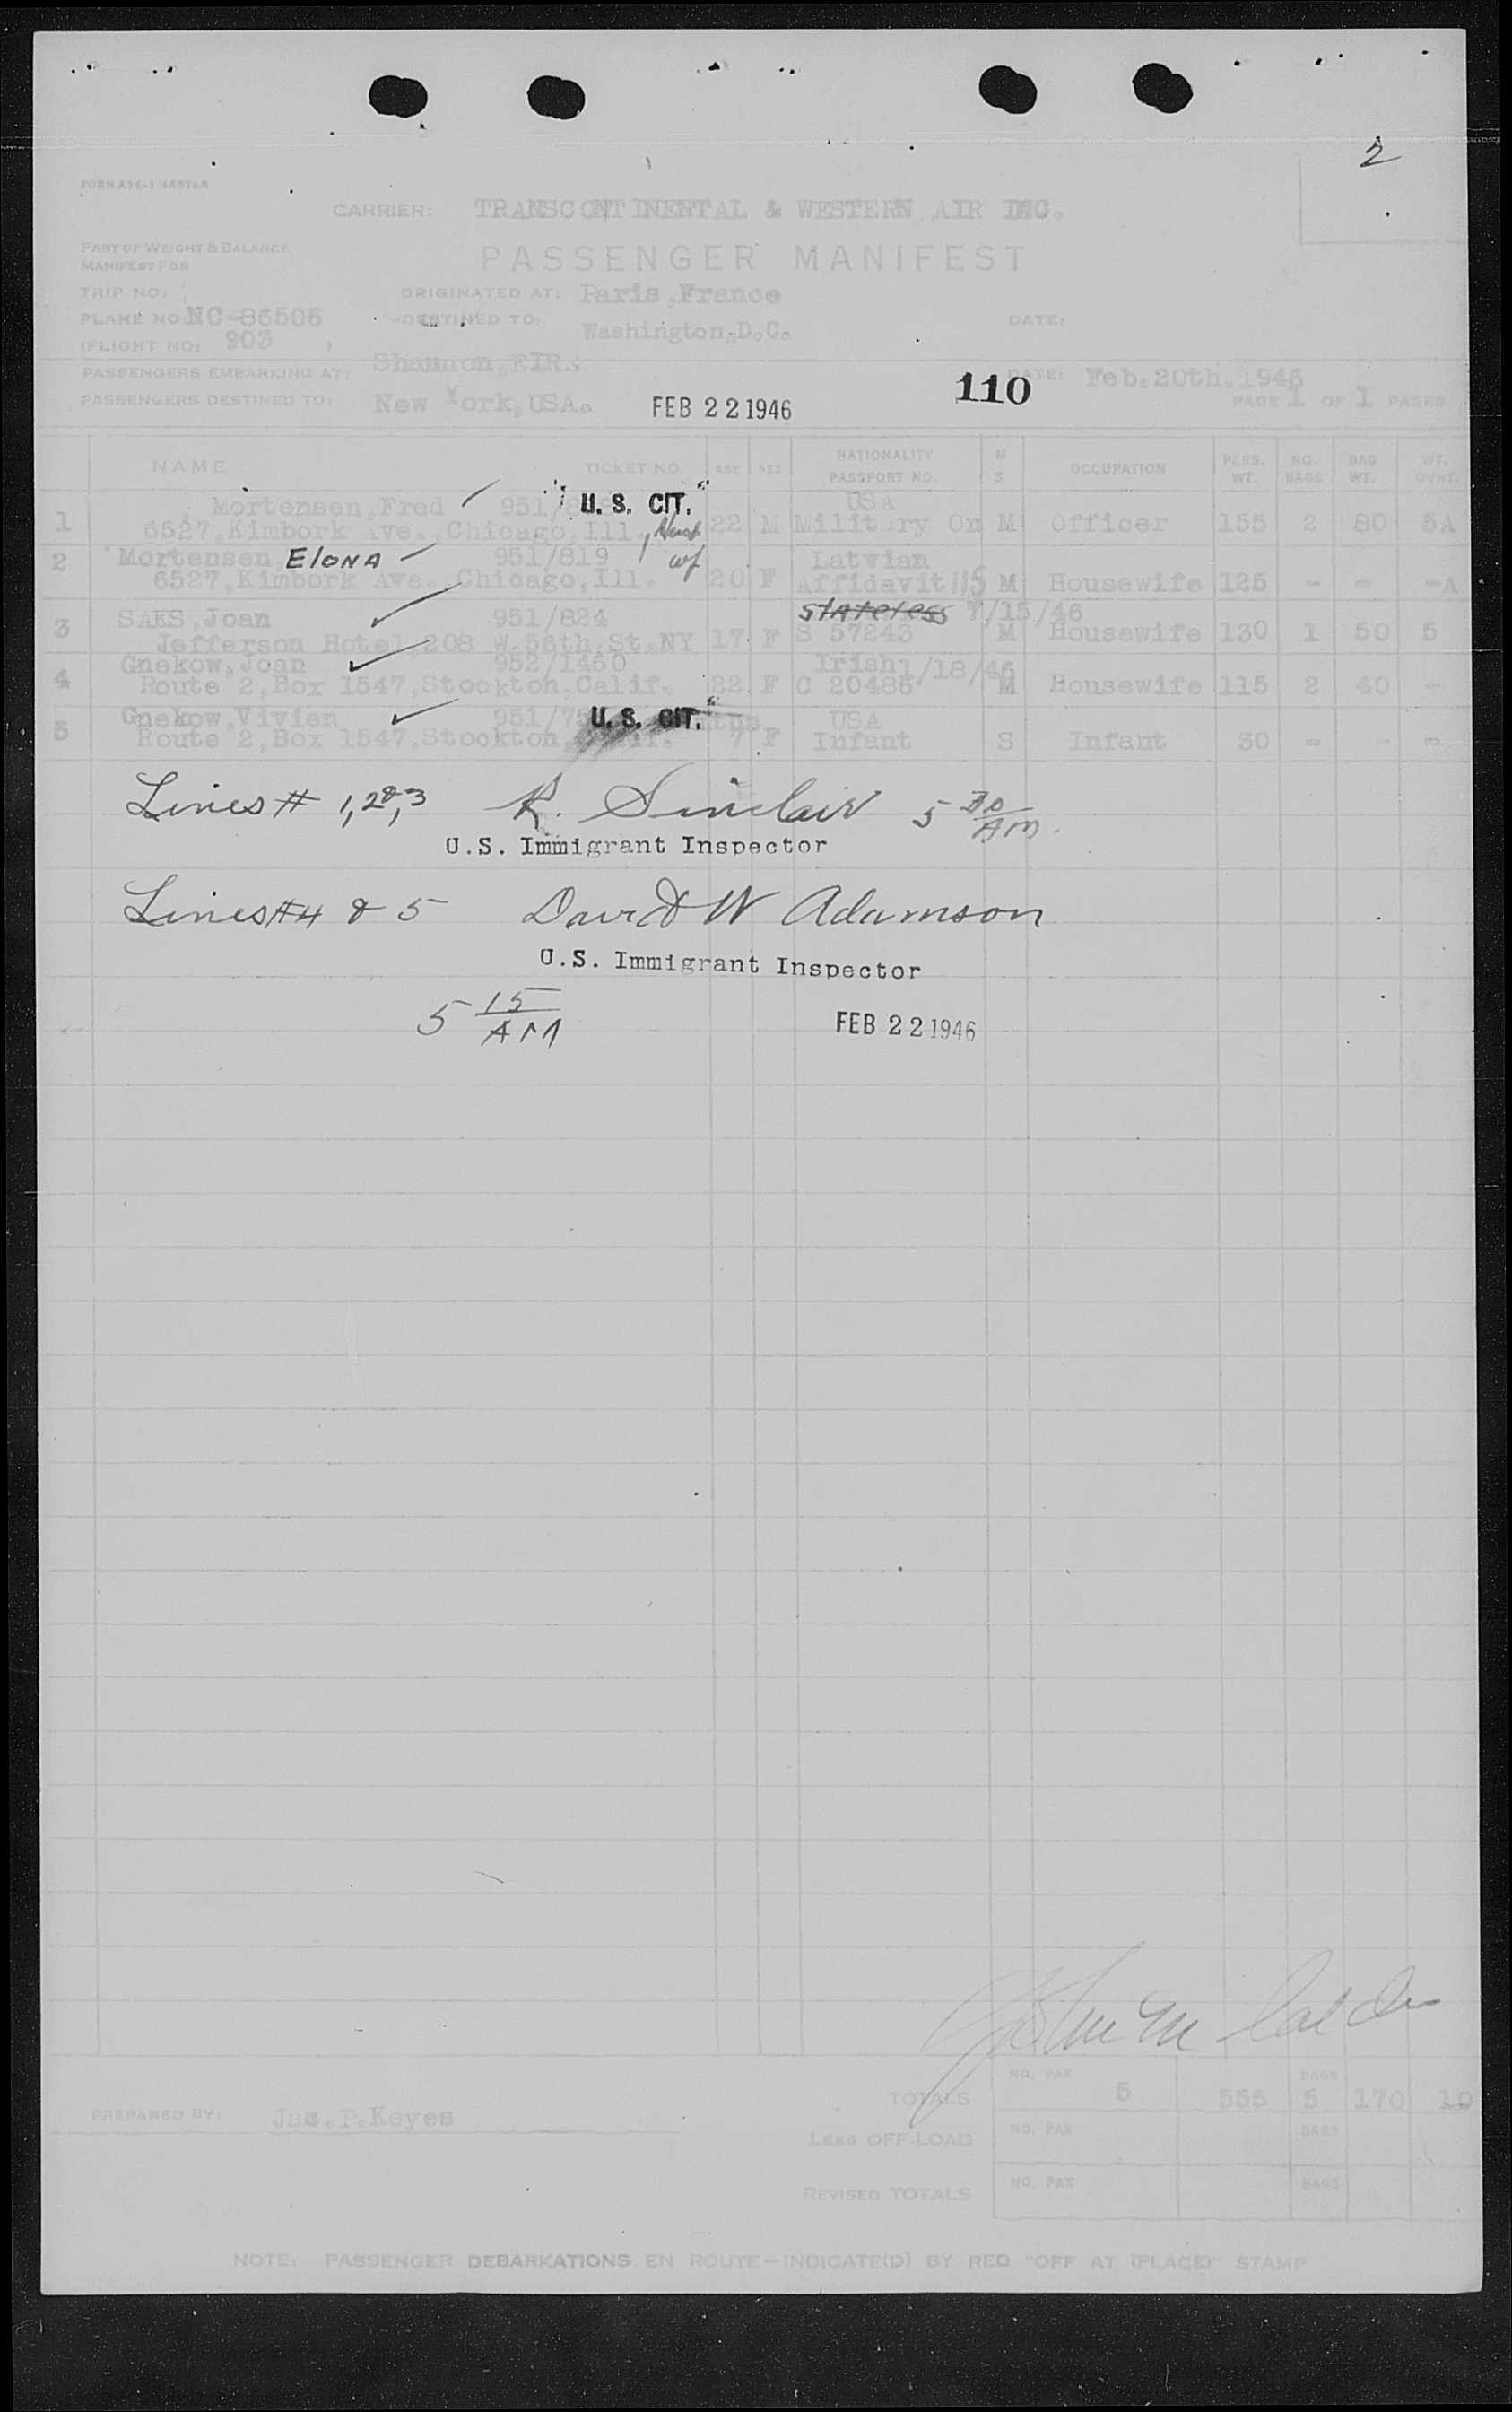 2
FORM A36-1 MASTER
CARRIER: TRANSCONTINENTAL & WESTERN AIR INC.
PART OF WEIGHT & BALANCE
MANIFEST FOR
PASSENGER MANIFEST
TRIP NO:
ORIGINATED AT: Paris, France
PLANE NO: NC-86506
DESTINED TO: Washington, D.C.
DATE:
(FLIGHT NO: 903 )
PASSENGERS EMBARKING AT: Shannon, EIR.
110
DATE: Feb. 20th. 1946
PASSENGERS DESTINED TO: New York, USA.
FEB 22 1946
PAGE 1 OF 1 PAGES
NAME TICKET NO. AGE SEX NATIONALITY PASSPORT NO. M S OCCUPATION PERS. WT. NO. BAGS BAG WT. WT. OVHT.
1 Mortensen, Fred 951/ "U. S. CIT." USA
6527, Kimbork Ave., Chicago, Ill. 22 M Military Or M Officer 155 2 80 5A
2 Mortensen ELONA 951/819 wf Latvian
6527, Kimbork Ave. Chicago, Ill. 20 F Affidavit M Housewife 125 - - -A
3 SAKS, Joan 951/824 Stateless 1/15/46
Jefferson Hotel, 208 W. 56th, St. NY 17 F S 57243 M Housewife 130 1 50 5
4 Gnekow, Joan 952/1460 Irish 1/18/46
Route 2, Box 1547, Stockton, Calif. 22 F C 20486 M Housewife 115 2 40 -
5 Gnekow, Vivien 951/75 U. S. CIT." USA
Route 2, Box 1547, Stockton, 7 F Infant S Infant 30 - - -
Lines # 1, 2 & 3 R. Sinclair 5 30 AM.
U.S. Immigrant Inspector
Lines #4 & 5 David W Adamson
U.S. Immigrant Inspector
5 15 AM
FEB 22 1946
TOTALS NO. PAX 5 555 BAGS 5 170 10
PREPARED BY: Jas. P. Keyes
LESS OFF-LOAD NO. PAX BAGS
REVISED TOTALS NO. PAX BAGS
NOTE: PASSENGER DEBARKATIONS EN ROUTE—INDICATE(D) BY RED "OFF AT (PLACE)" STAMP